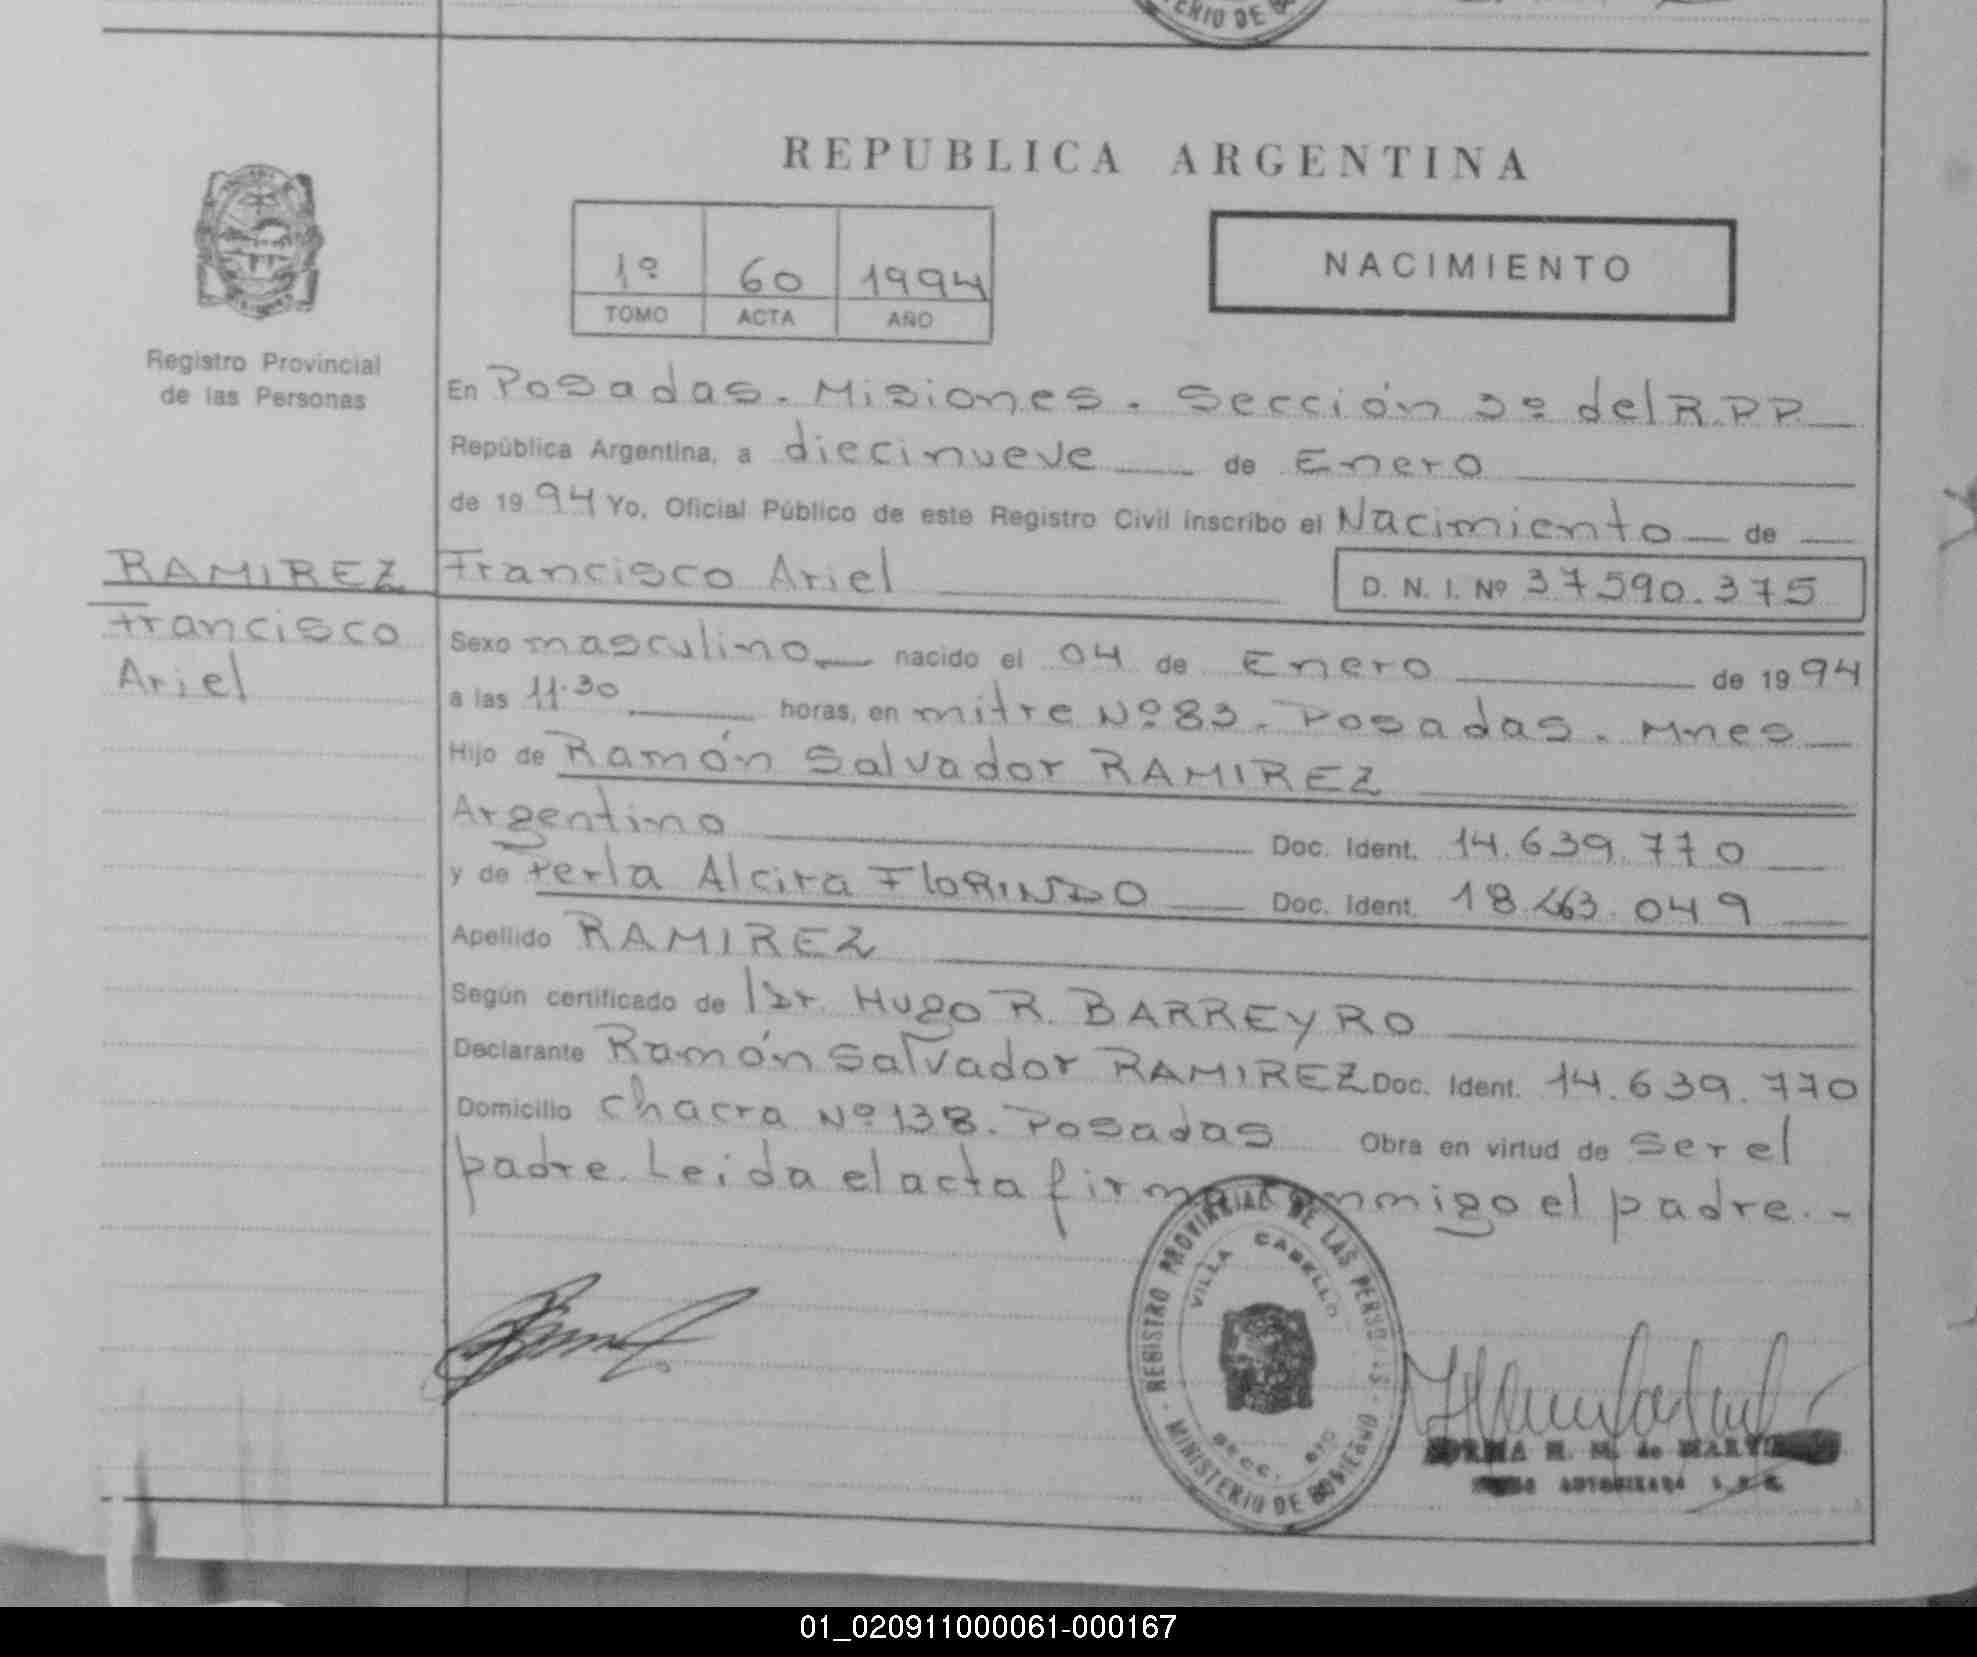 REPUBLICA ARGENTINA
NACIMIENTO
1º 60 1994
TOMO ACTA AÑO
Registro Provincial
de las Personas
En Posadas. Misiones. Sección 3º del R.P.P.
República Argentina, a diecinueve de Enero
de 1994 Yo, Oficial Público de este Registro Civil inscribo el Nacimiento de
RAMIREZ
Francisco
Ariel
Francisco Ariel D. N. I. Nº 37590.375
Sexo masculino nacido el 04 de Enero de 1994
a las 11.30 horas, en mitre Nº 83. Posadas. Mnes
Hijo de Ramón Salvador RAMIREZ
Argentino Doc. Ident. 14.639.770
y de Perla Alcira FloRINDO Doc. Ident. 18.463.049
Apellido RAMIREZ
Según certificado de Dr. Hugo R. BARREYRO
Declarante Ramón Salvador RAMIREZ Doc. Ident. 14.639.770
Domicilio Chacra Nº 138. Posadas Obra en virtud de ser el
padre. Leida el acta firma conmigo el padre.-
REGISTRO PROVINCIAL DE LAS PERSONAS
VILLA CABELLO
MINISTERIO DE GOBIERNO
NORMA H. M. de
AUTORIZADA
01_020911000061-000167